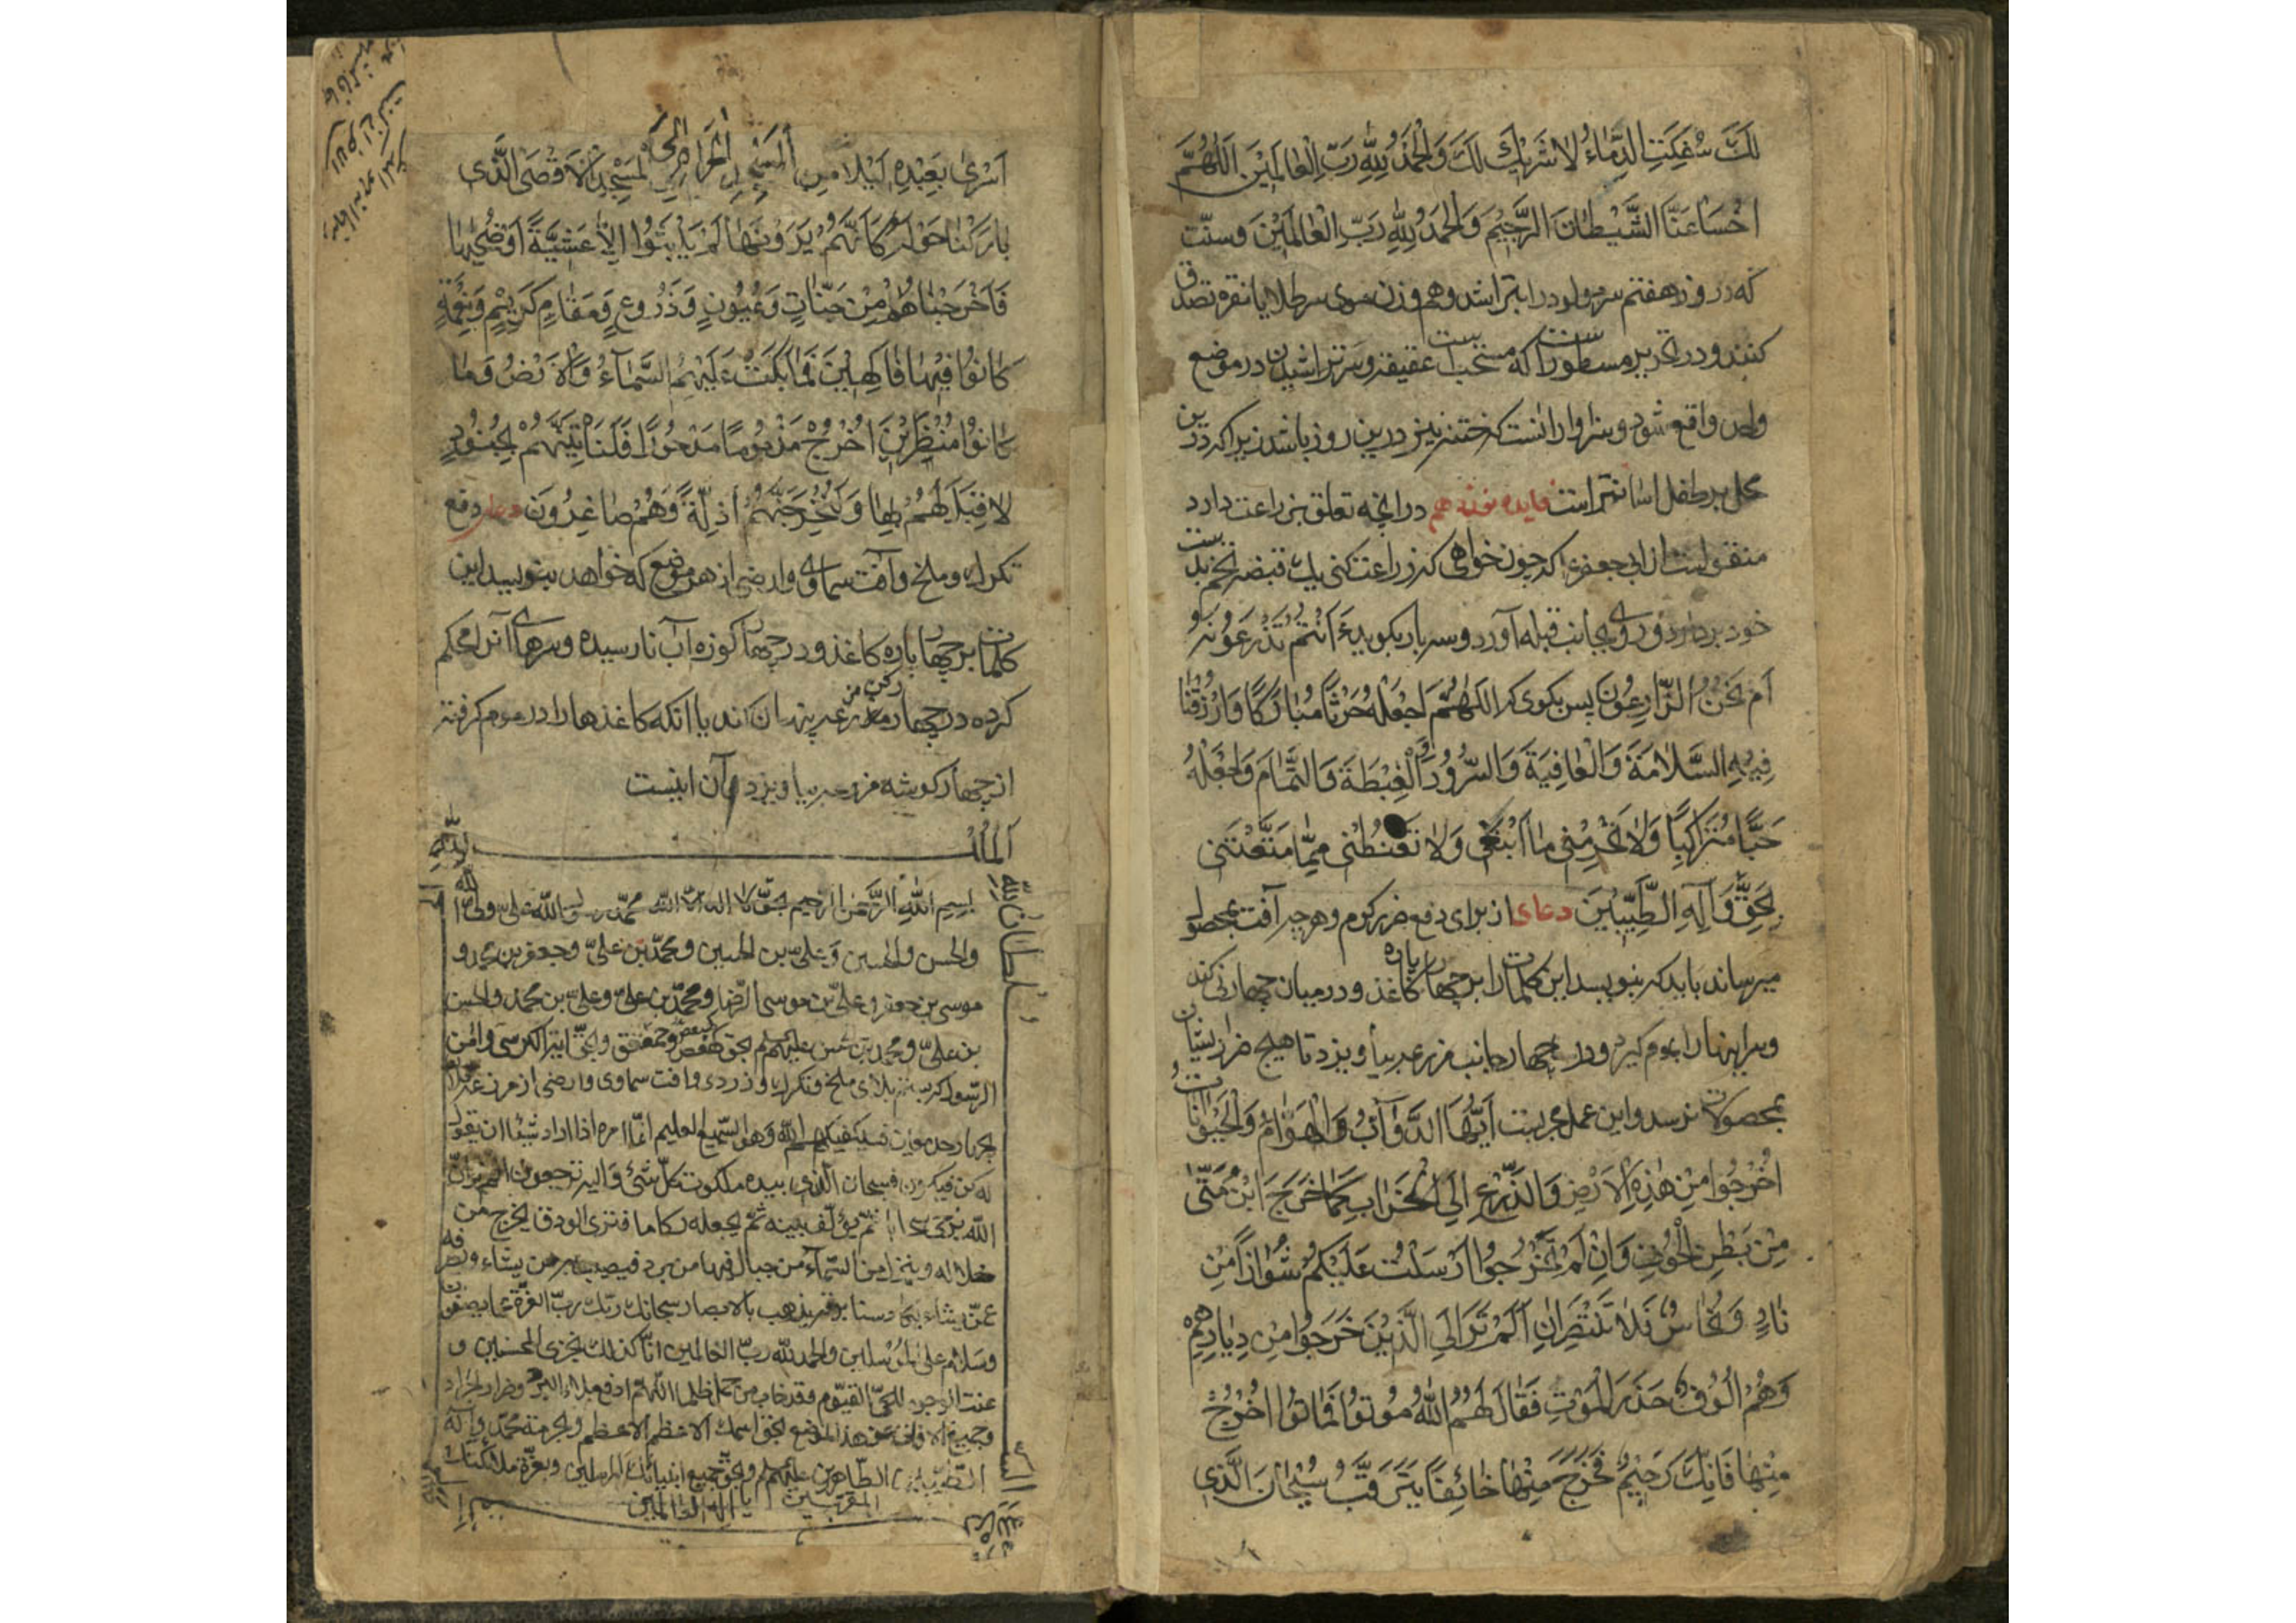 لَكَ سُفِكَتِ الدِّمَاءُ لا شَرِيكَ لَكَ وَالْحَمْدُ لِلّٰهِ رَبِّ الْعَالَمِينَ اَللّٰهُمَّ
اخْسَأْ عَنَّا الشَّيْطَانَ الرَّجِيْمَ وَالْحَمْدُ لِلّٰهِ رَبِّ الْعَالَمِيْنَ وسنّت
كه در روز هفتم سر مولود را بتراشد وهم وزن موى سر طلا يا نقره تصدق
كنند ودر تحرير مسطورست كه مستحب است عقيقه وسر تراشيدن در موضع
واحد واقع شود وسزاوار انست كه ختنه نيز درين روز باشد زيرا كه درين
محل بر طفل اسانتر است فايده نوزدهم در انچه تعلق بزراعت دارد
منقولست از ابى جعفر ع كه چون خواهى كه زراعت كنى يك قبضه تخم بدست
خود بردار ورو بجانب قبله آور وسه بار بكو ءَاَنْتُمْ تَزْرَعُوْنَهُ
اَمْ نَحْنُ الزَّارِعُوْنَ پس بكوى كه اَللّٰهُمَّ اجْعَلْهُ حَرْثًا مُبَارَكًا وَارْزُقْنَا
فِيْهِ السَّلَامَةَ وَالْعَافِيَةَ وَالسُّرُوْرَ وَالْغِبْطَةَ وَالتَّمَامَ وَاجْعَلْهُ
حَبًّا مُتَرَاكِبًا وَلَا تَحْرِمْنِى مَا اَبْتَغِى وَلَا تَقْنُطْنِى مِمَّا مَتَّعْتَنِى
بِحَقِّ وَآلِهِ الطَّيِّبِيْنَ دعاى از براى دفع ضرر كرم وهر چه آفت بمحصول
ميرساند بايد كه بنويسد اين كلمات را بر چهار پاره كاغذ ودر ميان چهار نى كند
وسر اينها را بموم كيرد ودر چهار جانب مزرعه بياويزد تا هيچ ضرر ازيشان
بمحصولات نرسد واين عمل مجربست اَيَّتُهَا الدَّوَآبُّ وَالْهَوَّامُ وَالْحَيْوَانَاتُ
اُخْرُجُوا مِنْ هٰذِهِ الْاَرْضِ وَالزَّرْعِ اِلَى الْخَرَابِ كَمَا خَرَجَ ابْنُ مَتّٰى
مِنْ بَطْنِ الْحُوْتِ وَاِنْ لَمْ تَخْرُجُوْا اَرْسَلْتُ عَلَيْكُمْ شُوَاظًا مِنْ
نَارٍ وَنُحَاسٌ فَلَا تَنْتَصِرَانِ اَلَمْ تَرَ اِلَى الَّذِيْنَ خَرَجُوا مِنْ دِيَارِهِمْ
وَهُمْ اُلُوْفٌ حَذَرَ الْمَوْتِ فَقَالَ لَهُمُ اللّٰهُ مُوْتُوْا فَمَاتُوْا اُخْرُجْ
مِنْهَا فَاِنَّكَ رَجِيْمٌ فَخَرَجَ مِنْهَا خَائِفًا يَتَرَقَّبُ سُبْحَانَ الَّذِى
اَسْرٰى بِعَبْدِهِ لَيْلًا مِنَ الْمَسْجِدِ الْحَرَامِ اِلَى الْمَسْجِدِ الْاَقْصَى الَّذِى
بَارَكْنَا حَوْلَهُ كَاَنَّهُمْ يَوْمَ يَرَوْنَهَا لَمْ يَلْبَثُوا اِلَّا عَشِيَّةً اَوْ ضُحٰيهَا
فَاَخْرَجْنَاهُمْ مِنْ جَنَّاتٍ وَعُيُوْنٍ وَزُرُوْعٍ وَمَقَامٍ كَرِيْمٍ وَنِعْمَةٍ
كَانُوْا فِيْهَا فَاكِهِيْنَ فَمَا بَكَتْ عَلَيْهِمُ السَّمَآءُ وَالْاَرْضُ وَمَا
كَانُوْا مُنْظَرِيْنَ اُخْرُجْ مَذْمُوْمًا مَدْحُوْرًا فَلَنَاْتِيَنَّهُمْ بِجُنُوْدٍ
لَا قِبَلَ لَهُمْ بِهَا وَلَنُخْرِجَنَّهُمْ اَذِلَّةً وَهُمْ صَاغِرُوْنَ دعاى دفع
تكرك وملخ وآفت سماوى وارضى از هر موضع كه خواهد بنويسد اين
كلمات بر چهار پاره كاغذ ودر چهار كوزه آب نارسيده وسرهاى آنرا محكم
كرده در چهار ركن مزرعه پنهان كند يا انكه كاغذها را در موم كرفته
از چهار كوشه مزرعه بياويزد وآن اينست
اَلْمُلْكُ لِلّٰهِ
بسم الله الرَّحمن الرحيم بحق لا اله الا الله محمّد رسول الله على ولى الله
والحسن والحسين وعلىّ بن الحسين ومحمّد بن علىّ وجعفر بن محمد و
موسى بن جعفر وعلىّ بن موسى الرّضا ومحمّد بن علىّ وعلىّ بن محمد والحسن
بن علىّ ومحمد بن حسن عليهم السلم بحق كهيعص وحمعسق وبحق آية الكرسى وآمن
الرّسول كه بلاى ملخ وتكرك وزردى وآفت سماوى وارضى از مزرعه
فسيكفيكهم الله وهو السّميع العليم انّما امره اذا اراد شيئا ان يقول
له كن فيكون فسبحان الّذى بيده ملكوت كلّ شئ واليه ترجعون الم تر انّ
الله يزجى سحابا ثمّ يؤلّف بينه ثمّ يجعله ركاما فترى الودق يخرج من
خلاله وينزل من السّمآء من جبال فيها من برد فيصيب به من يشاء ويصرفه
عمّن يشاء يكاد سنا برقه يذهب بالابصار سبحان ربّك ربّ العزّة عمّا يصفون
وسلام على المرسلين والحمد لله ربّ العالمين انّا كذلك نجزى المحسنين و
عنت الوجوه للحىّ القيّوم وقد خاب من حمل ظلما اللّهم ادفع بلاء البرد وضرار الجراد
وجميع الآفات عن هذا الموضع بحق اسمك الاعظم الاعظم وبحرمة محمّد وآله
الطّيّبين الطّاهرين عليهم السلم وبحق جميع انبيائك المرسلين وبعزّة ملائكتك
المقرّبين يا اله العالمين